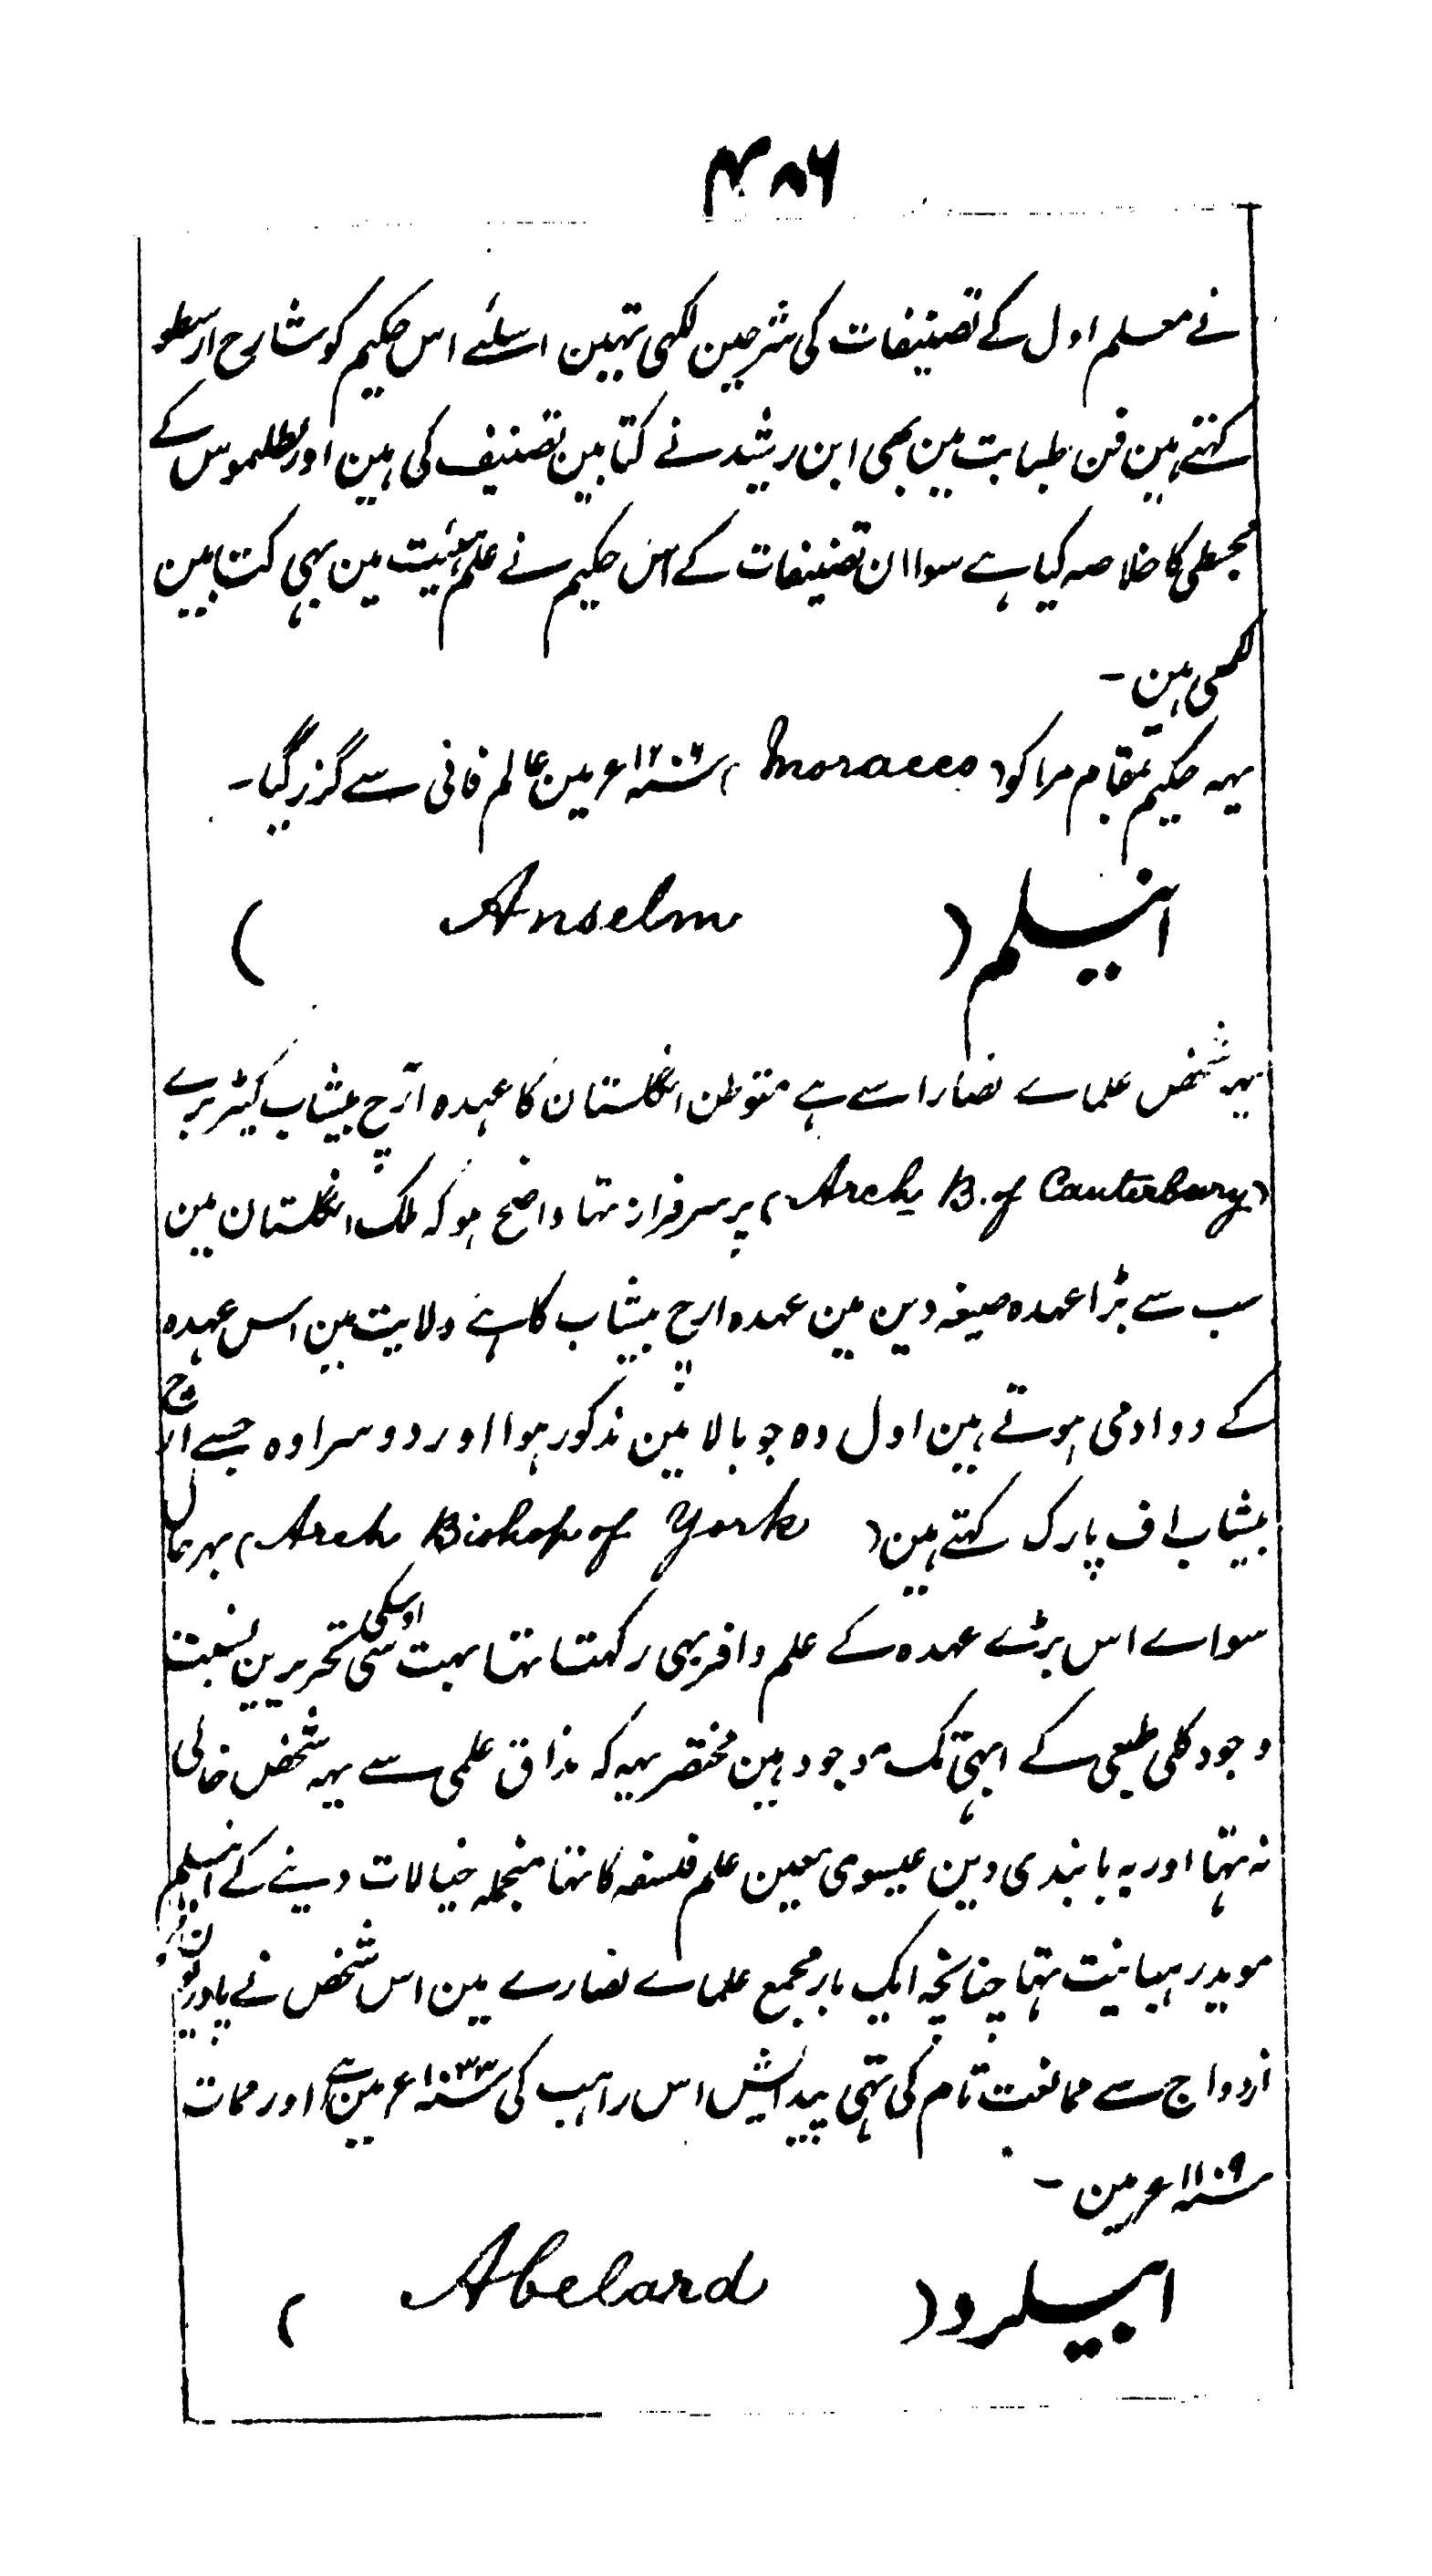 ۴۸۶
نے معلم اول کے تصنیفات کی شرحین لکھی تہین اسلئے اس حکیم کو شارح ارسطو
کہتے ہین فن طبابت مین بھی ابن رشید نے کتابین تصنیف کی ہین اور بطلیموس کے
مجسطی کا خلاصہ کیا ہے سوا ان تصنیفات کے اس حکیم نے علم ہئیت مین بہی کتابین
لکھی ہین -
یہہ حکیم بمقام مراکو ( Moracco ) سنہ ۱۲۰۶ ء مین عالم فانی سے گزر گیا -
انیسلم ( Anselm )
یہہ شخص علماے نصارا سے ہے متوطن انگلستان کا عہدہ آرچ بیشاپ کینٹربرے
( Arch B. of Canterbury ) پر سرفراز تہا واضح ہو کہ ملک انگلستان مین
سب سے بڑا عہدہ صیغہ دین مین عہدہ ارچ بیشاپ کا ہے ولایت مین اس عہدہ
کے دو ادمی ہوتے ہین اول وہ جو بالا مین مذکور ہوا اور دوسرا وہ جسے ارچ
بیشاپ اف یارک کہتے ہین ( Arch Bishop of York ) بہرحال
سواے اس بڑے عہدہ کے علم وافر بہی رکہتا تہا بہت سی اوسکی تحریرین نسبت
وجود کلی طبعی کے ابہی تک موجود ہین مختصر یہہ کہ مذاق علمی سے یہہ شخص خالی
نہ تہا اور بہ پابندی دین عیسوی معین علم فلسفہ کا تہا منجملہ خیالات دینے کے انیسلم
موید رہبانیت تہا چنانچہ ایک بار مجمع علماے نصارے مین اس شخص نے پادریون کو
ازدواج سے ممانعت تام کی تہی پیدایش اس راہب کی سنہ ۱۰۳۳ ء مین ہے اور ممات
سنہ ۱۱۰۹ ء مین -
ابیلرد ( Abelard )